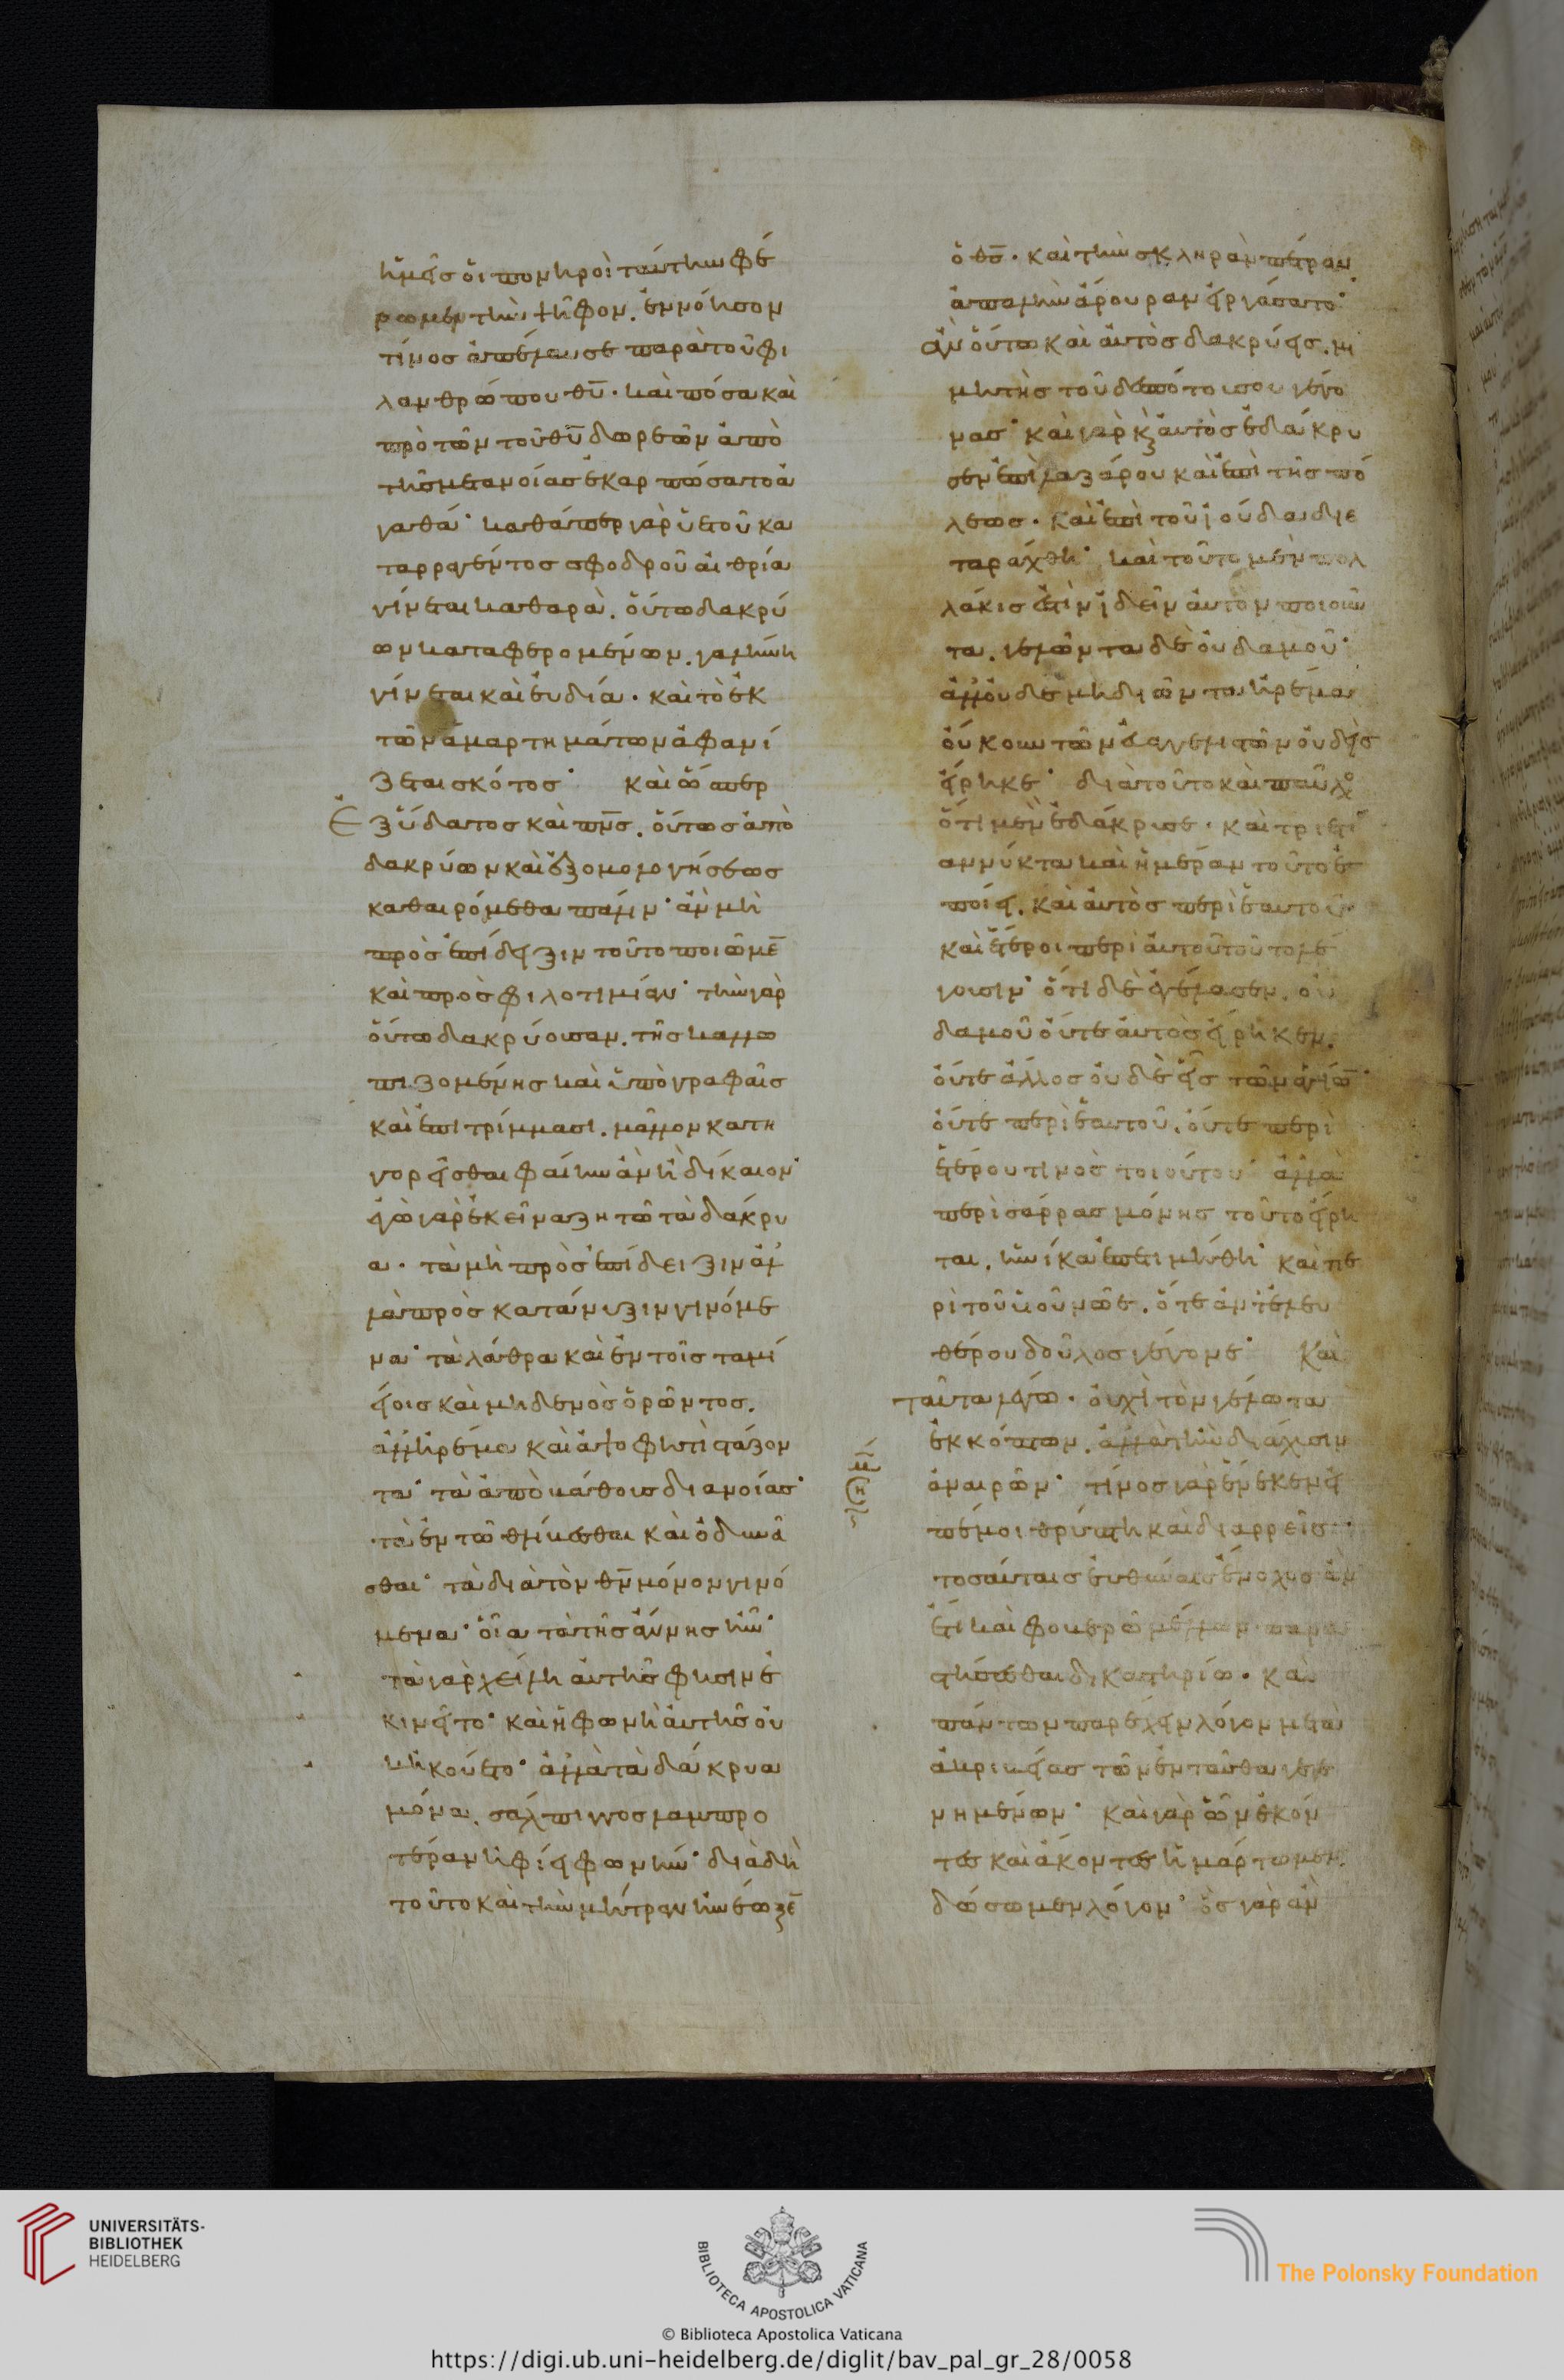 ἡμεῖς οἱ πονηροὶ ταύτην φέ
ρωμεν τὴν ψῆφον. ἐννόησον
τίνος ἀπέλαυσε παρὰ τοῦ φι
λανθρώπου θυ̅· καὶ πόσα καὶ
πρὸ τῶν τοῦ θυ̅ δωρεῶν ἀπὸ
τῆς μετανοίας ἐκαρπώσατο ἀ
γαθά· καθάπερ γὰρ ὑετοῦ κα
ταρραγέντος σφοδροῦ αἰθρία
γίνεται καθαρὰ. οὕτω δακρύ
ων καταφερομένων. γαλήνη
γίνεται καὶ εὐδία· καὶ τὸ ἐκ
τῶν ἁμαρτημάτων ἀφανί
ζεται σκότος· καὶ ὥσπερ
ἐξ ὕδατος καὶ πν̅ς. οὕτως ἀπὸ
δακρύων καὶ ἐξομολογήσεως
καθαιρόμεθα πάλιν· ἂν μὴ
πρὸς ἐπίδειξιν τοῦτο ποιῶμε̅
καὶ πρὸς φιλοτιμίαν· τὴν γὰρ
οὕτω δακρύουσαν. τῆς καλλω
πιζομένης καὶ ὑπογραφαῖς
καὶ ἐπιτρίμμασι. μᾶλλον κατη
γορεῖσθαι φαίην ἂν ἢ δίκαιον·
ἐγὼ γὰρ ἐκεῖνα ζητῶ τὰ δάκρυ
α· τὰ μὴ πρὸς ἐπίδειξιν ἀλ
λὰ πρὸς κατάνυξιν γινόμε
να· τὰ λάθρα καὶ ἐν τοῖς ταμι
είοις καὶ μηδενὸς ὁρῶντος.
ἀλλ' ἠρέμα καὶ ἀψοφητὶ στάζον
τα· τὰ ἀπὸ βάθους διανοίας·
τὰ ἐν τῷ θλίβεσθαι καὶ ὀδυνᾶ
σθαι· τὰ διὰ τὸν θν̅ μόνον γινό
μενα· οἷα τὰ τῆς ἄννης ἦν·
τὰ γὰρ χείλη αὐτῆς φησιν ἐ
κινεῖτο· καὶ ἡ φωνὴ αὐτῆς οὐ
κ ἠκούετο· ἀλλὰ τὰ δάκρυα
μόνα. σάλπιγγος λαμπρο
τέραν ἠφίει φωνήν· διὰ δὴ
τοῦτο καὶ τὴν μήτραν ἠνέῳξε̅
ὁ θς̅· καὶ τὴν σκληρὰν πέτραν
ἁπαλὴν ἄρουραν εἰργάσατο·
ἂν οὕτω καὶ αὐτὸς δακρύεις. μι
μητὴς τοῦ δεσπότου σου γέγο
νας· καὶ γὰρ κ̀ αὐτὸς ἐδάκρυ
σεν ἐπὶ λαζάρου καὶ ἐπὶ τῆς πό
λεως· καὶ ἐπὶ τοῦ ἰούδα διε
ταράχθη· καὶ τοῦτο μὲν πολ
λάκις ἐστὶν ἰδεῖν αὐτὸν ποιοῦν
τα. γελῶντα δὲ οὐδαμοῦ·
ἀλλ' οὐδὲ μηδιῶντα ἠρέμα
οὔκουν τῶν εὐαγγελιστῶν οὐδεὶς
εἴρηκε· διὰ τοῦτο καὶ παῦλο
ὅτι μὲν ἐδάκρυσε· καὶ τριετί
αν νύκτα καὶ ἡμέραν τοῦτο ἐ
ποίει. καὶ αὐτὸς περὶ ἑαυτοῦ·
καὶ ἕτεροι περὶ αὐτοῦ τοῦτο λέ
γουσιν· ὅτι δὲ ἐγέλασεν. οὐ
δαμοῦ οὔτε αὐτὸς εἴρηκεν.
οὔτε ἄλλος οὐδὲ εἷς τῶν ἁγίω̅·
οὔτε περὶ ἑαυτοῦ. οὔτε περὶ
ἑτέρου τινὸς τοιούτου· ἀλλὰ
περὶ σάρρας μόνης τοῦτο εἴρη
ται. ἡνίκα ἐπετιμήθη· καὶ πε
ρὶ τοῦ υἱοῦ νῶε. ὅτε ἀντ' ἐλευ
θέρου δοῦλος γέγονε· Καὶ
ταῦτα λέγω· οὐχὶ τὸν γέλωτα
ἐκκόπτων. ἀλλὰ τὴν διάχυσιν
ἀναιρῶν· τίνος γὰρ ἕνεκεν εἰ
πέ μοι θρύπτη καὶ διαρρεῖς·
τοσαύταις εὐθύναις ἔνοχος ὢν
ἔτι καὶ φοβερῷ μέλλων παρα
στήσεσθαι δικαστηρίω· καὶ
πάντων παρέχειν λόγον μετὰ
ἀκριβείας τῶν ἐνταῦθα γεγε
νημένων· καὶ γὰρ ὧν ἑκόν
τες καὶ ἄκοντες ἡμάρτωμεν.
δώσωμεν λόγον· ὃς γὰρ ἂν
UNIVERSITÄTS-
BIBLIOTHEK
HEIDELBERG
BIBLIOTECA APOSTOLICA VATICANA
The Polonsky Foundation
© Biblioteca Apostolica Vaticana
https://digi.ub.uni-heidelberg.de/diglit/bav_pal_gr_28/0058